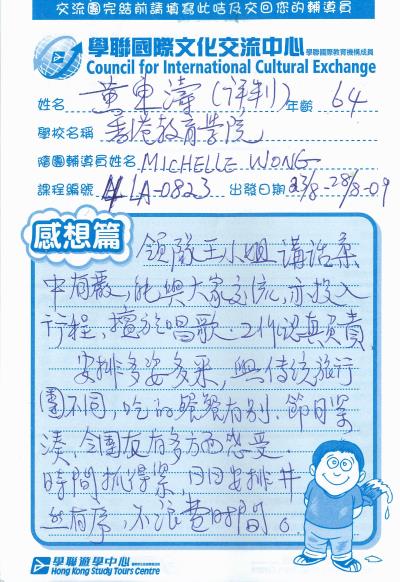 交流團完結前請填寫此咭及交回您的輔導員
學聯國際文化交流中心 學聯國際教育機構成員
Council for International Cultural Exchange
姓名 黃東濤(評判) 年齡 64
學校名稱 香港教育學院
隨團輔導員姓名 MICHELLE WONG
課程編號 LA-0823 出發日期 23/8-28/8-09
感想篇
領隊王小姐講話柔
中有嚴,能與大家交流,亦投入
行程,擅於唱歌.工作認真負責.
安排多姿多采,與傳統旅行
團不同,吃的餐餐有別.節目緊
湊,令團友有多方面感受.
時間抓得緊,日日安排井
然有序,不浪費時間。
學聯遊學中心
Hong Kong Study Tours Centre